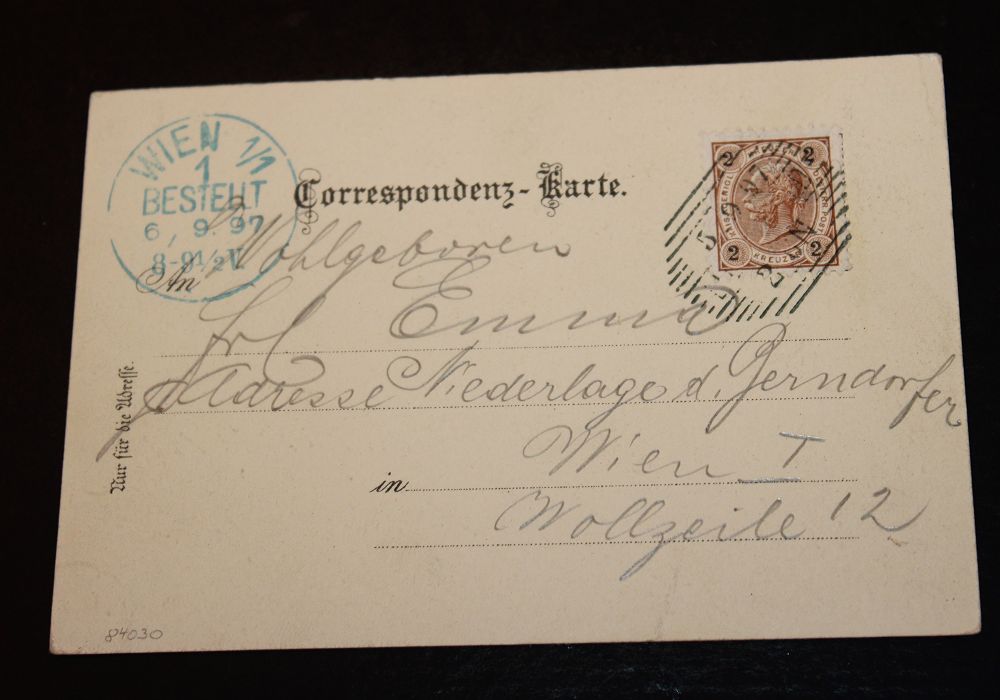 WIEN 1/1
1
BESTELLT
6. 9. 97
8-9½V.
Correspondenz-Karte.
2 2
KREUZER
2 2
5 9 97
Wohlgeboren
An
Frl Emma
Adresse Niederlage d. Berndorfer
Wien I
in
Wollzeile 12
Nur für die Adresse.
84030